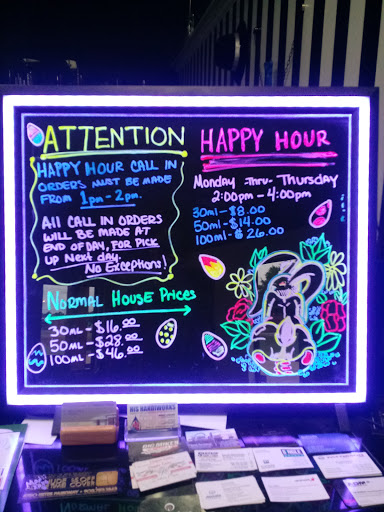 ATTENTION
HAPPY HOUR CALL IN
ORDERS MUST BE MADE
FROM 1pm - 2pm.
All CALL IN ORDERS
WILL BE MADE AT
END OF DAY, FOR PICK
UP NEXT day.
No Exceptions!
NORMAL HOUSE PRICES
30mL - $16.00
50mL - $28.00
100mL - $46.00
HAPPY HOUR
Monday -Thru- Thursday
2:00pm - 4:00pm
30ml - $8.00
50ml - $14.00
100ml - $26.00